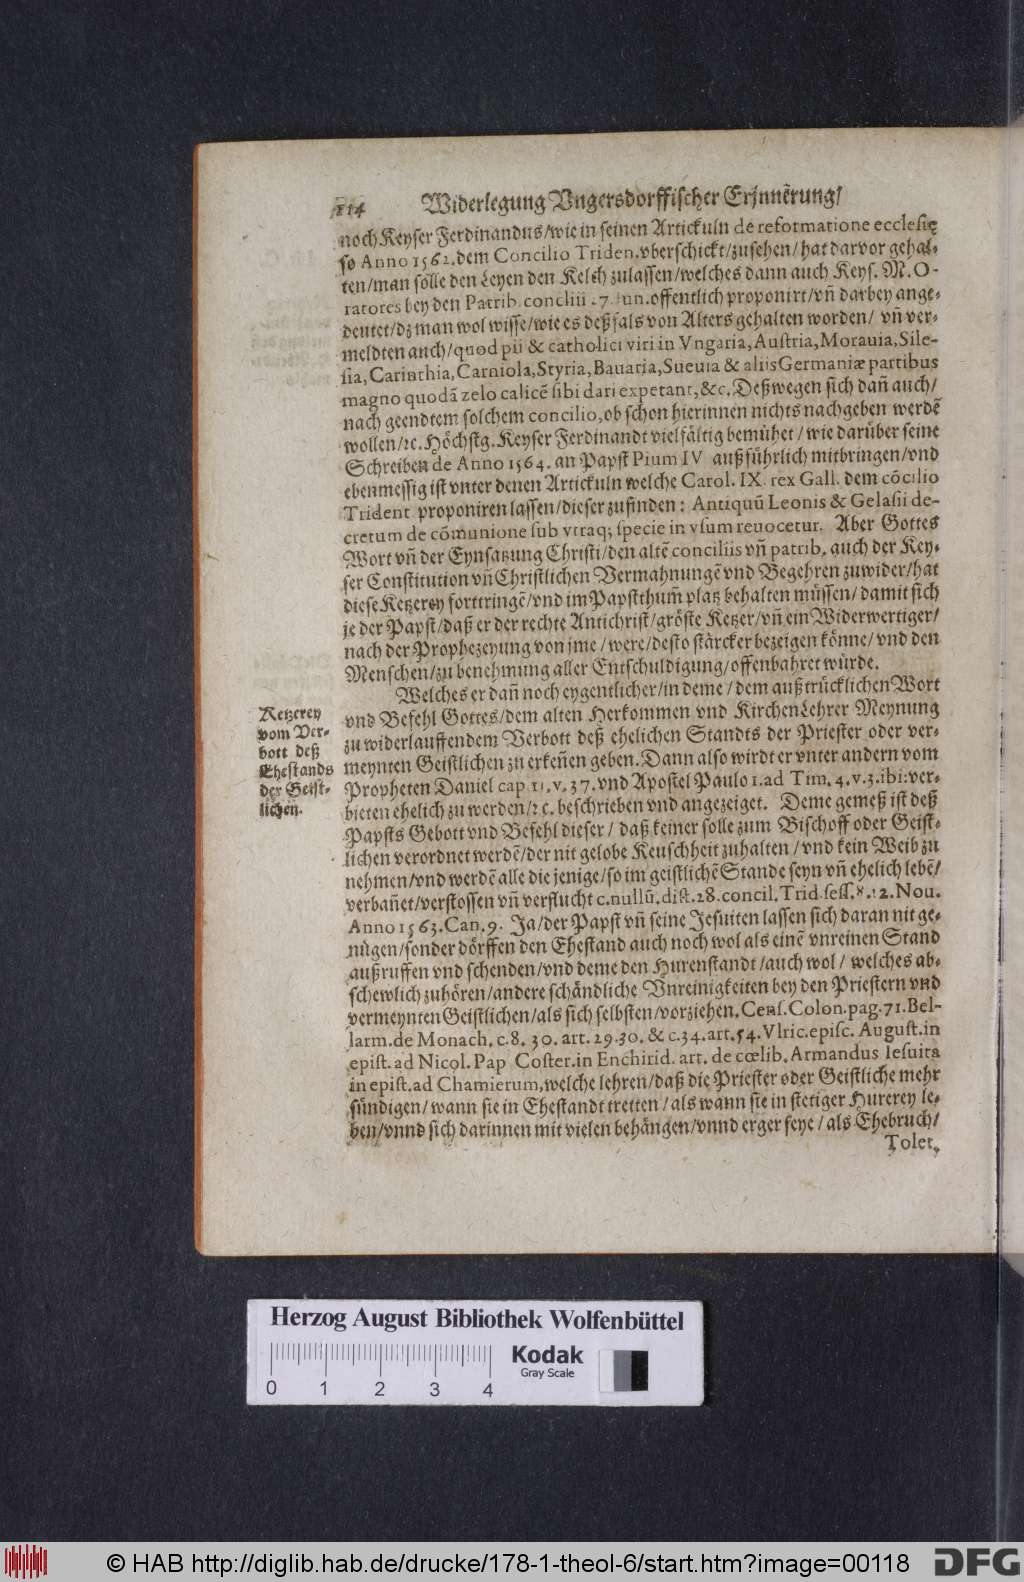 114 Widerlegung Vngersdorffischer Erjnnerung/
noch Keyser Ferdinandus/wie in seinen Artickuln de reformatione ecclesię
so Anno 1562. dem Concilio Triden. vberschickt/zusehen/hat darvor gehal-
ten/man sölle den Leyen den Kelch zulassen/welches dann auch Keys. M. O-
ratores bey den Patrib. concliii 27. Iun. offentlich proponirt/vñ darbey ange-
deutet/dz man wol wisse/wie es deßfals von Alters gehalten worden/ vñ ver-
meldten auch/quod pii & catholici viri in Vngaria, Austria, Morauia, Sile-
sia, Carinthia, Carniola, Styria, Bauaria, Sueuia & aliis Germaniæ partibus
magno quodã zelo calicẽ sibi dari expetant, &c. Deßwegen sich dañ auch/
nach geendtem solchem concilio, ob schon hierinnen nichts nachgeben werdẽ
wollen/ꝛc. Höchstg. Keyser Ferdinandt vielfältig bemühet/ wie darüber seine
Schreiben de Anno 1564. an Papst Pium IV außführlich mitbringen/vnd
ebenmessig ist vnter denen Artickuln welche Carol. IX. rex Gall. dem cõcilio
Trident. proponiren lassen/dieser zufinden: Antiquũ Leonis & Gelasii de-
cretum de cõmunione sub vtraq; specie in vsum reuocetur. Aber Gottes
Wort vñ der Eynsatzung Christi/den altẽ conciliis vñ patrib. auch der Key-
ser Constitution vñ Christlichen Vermahnungẽ vnd Begehren zuwider/hat
diese Ketzerey forttringẽ/vnd im Papstthum̃ platz behalten müssen/damit sich
je der Papst/daß er der rechte Antichrist/gröste Ketzer/vñ ein Widerwertiger/
nach der Prophezeyung von jme/were/desto stärcker bezeigen könne/vnd den
Menschen/zu benehmung aller Entschuldigung/offenbahret würde.
Welches er dañ noch eygentlicher/in deme/dem außtrücklichen Wort
vnd Befehl Gottes/dem alten Herkommen vnd KirchenLehrer Meynung
zu widerlauffendem Verbott deß ehelichen Standts der Priester oder ver-
meynten Geistlichen zu erkeñen geben. Dann also wirdt er vnter andern vom
Propheten Daniel cap. 11. v. 37. vnd Apostel Paulo 1. ad Tim. 4. v. 3. ibi: ver-
bieten ehelich zu werden/ꝛc. beschrieben vnd angezeiget. Deme gemeß ist deß
Papsts Gebott vnd Befehl dieser/ daß keiner solle zum Bischoff oder Geist-
lichen verordnet werdẽ/der nit gelobe Keuschheit zuhalten/vnd kein Weib zu
nehmen/vnd werdẽ alle die jenige/so im geistlichẽ Stande seyn vñ ehelich lebẽ/
verbañet/verstossen vñ verflucht c. nullũ, dist. 28. concil. Trid. sess. 8. 12. Nou.
Anno 1563. Can. 9. Ja/der Papst vñ seine Jesuiten lassen sich daran nit ge-
nügen/sonder dörffen den Ehestand auch noch wol als einẽ vnreinen Stand
außruffen vnd schenden/vnd deme den Hurenstandt/auch wol/ welches ab-
schewlich zuhören/andere schändliche Vnreinigkeiten bey den Priestern vnd
vermeynten Geistlichen/als sich selbsten/vorziehen. Cens. Colon. pag. 71. Bel-
larm. de Monach. c. 8. 30. art. 29. 30. & c. 34. art. 54. Vlric. episc. August. in
epist. ad Nicol. Pap Coster. in Enchirid. art. de cœlib. Armandus Iesuita
in epist. ad Chamierum, welche lehren/daß die Priester oder Geistliche mehr
sündigen/wann sie in Ehestandt tretten/als wann sie in stetiger Hurerey le-
ben/vnnd sich darinnen mit vielen behängen/vnnd erger seye/als Ehebruch/
Tolet.
Ketzerey
vom Ver-
bott deß
Ehestands
der Geist-
lichen.
Herzog August Bibliothek Wolfenbüttel
Kodak
Gray Scale
0 1 2 3 4
© HAB http://diglib.hab.de/drucke/178-1-theol-6/start.htm?image=00118
DFG